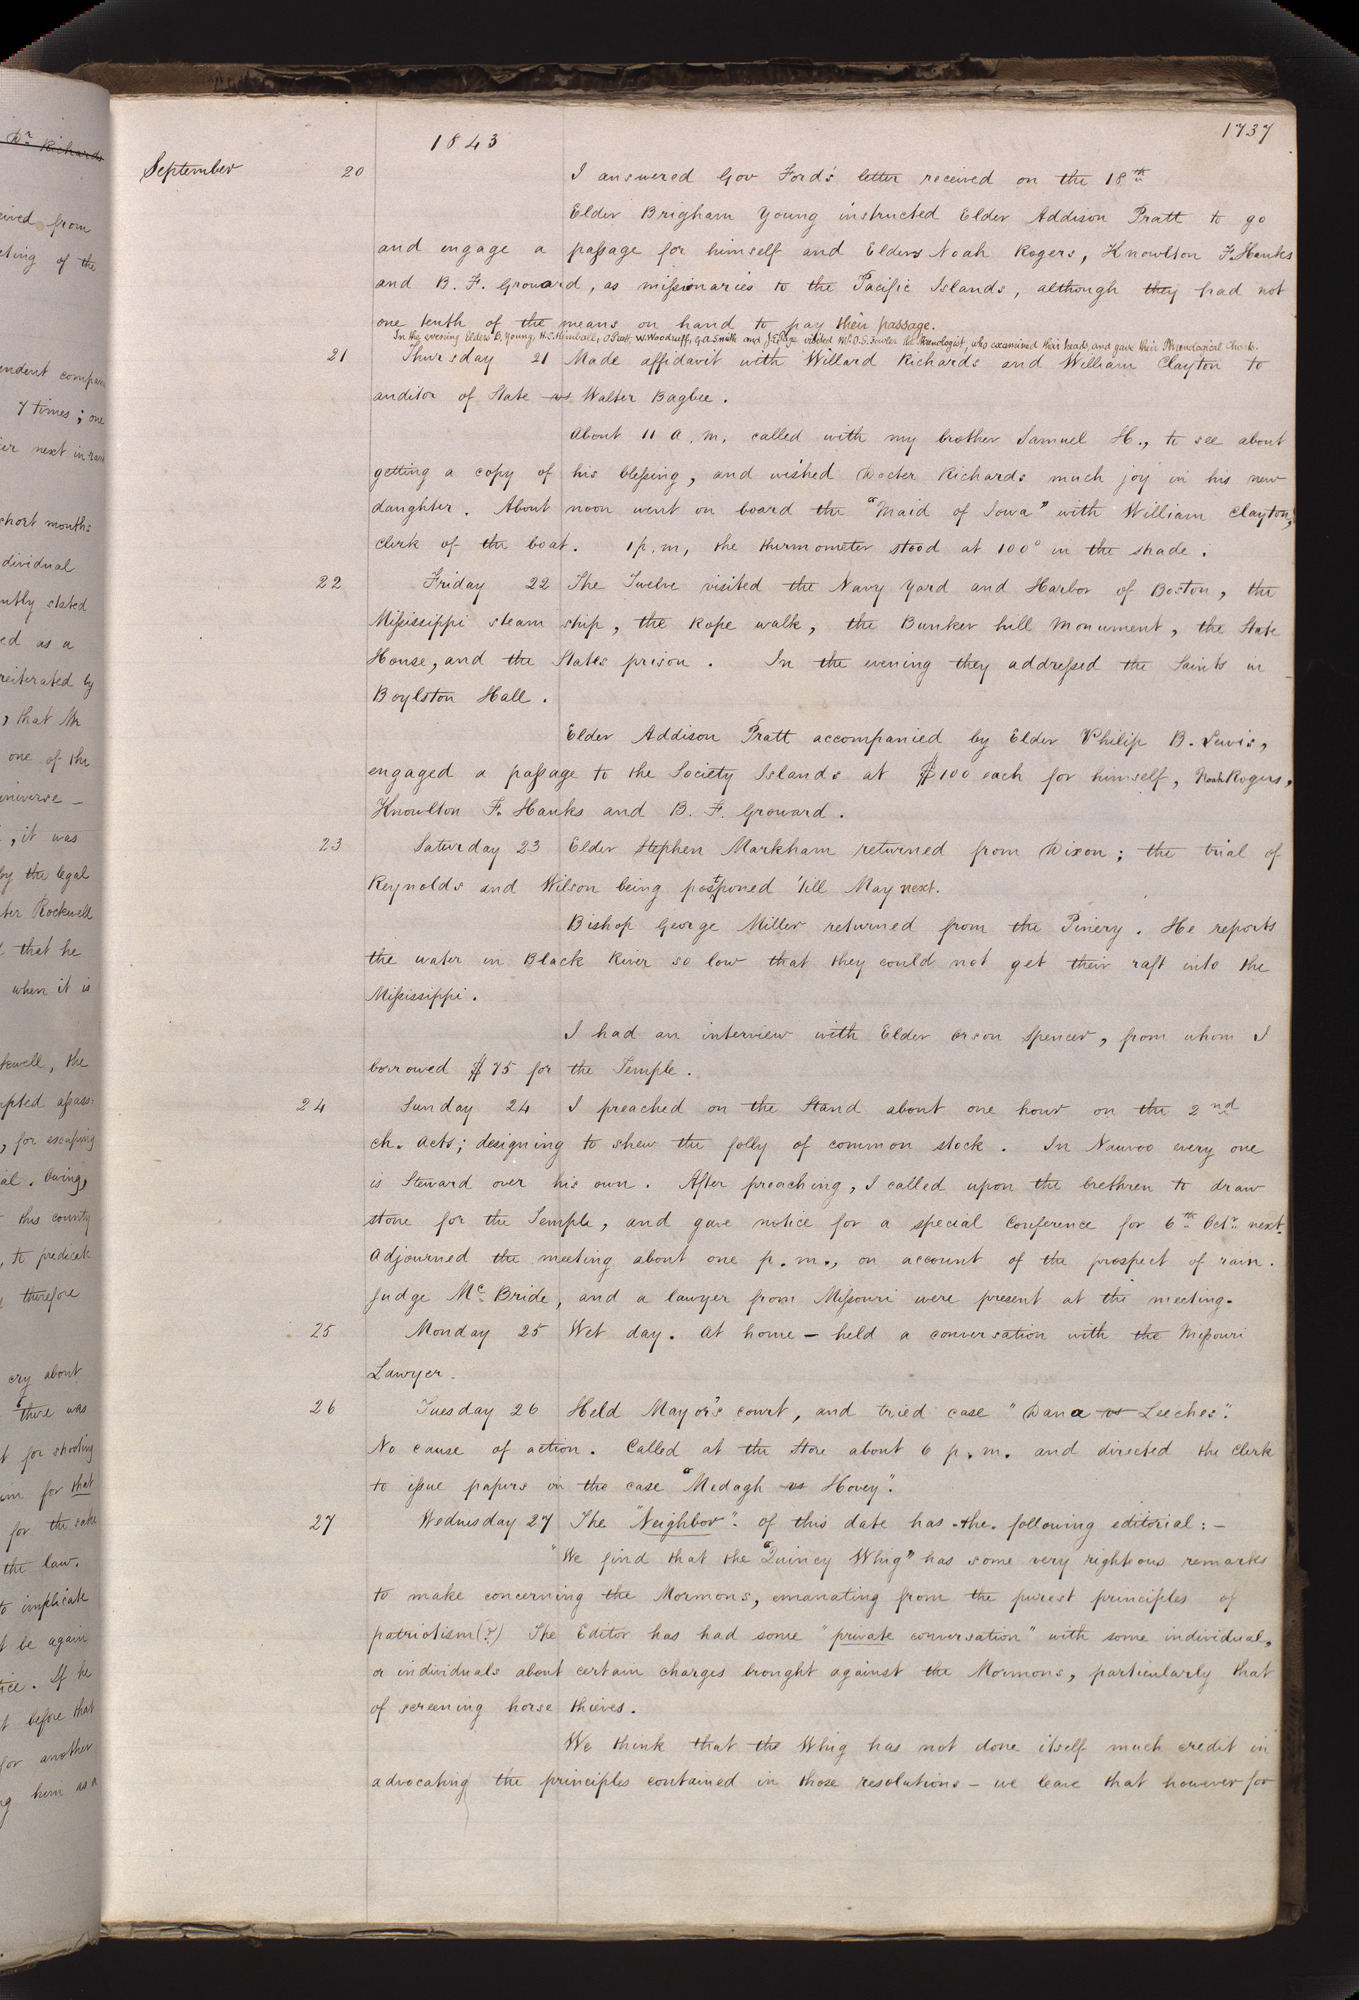 Dr Richards
eived from
eting of the
endent compan
7 times; one
ier next in rank
short months
dividual
ntly stated
ed as a
reiterated by
, that Mr
one of the
universe –
, it was
by the legal
ter Rockwell
d that he
when it is
kwell, the
mpted assass:
, for escaping
ial. Owing,
this county
, to predicate
therefore
cry about
"there was
t for shooting
for that
for the sake
the law.
to implicate
be again
tice. If he
t before that
for another
ng him as a
1737
1843
September 20 I answered Gov Ford's letter received on the 18th
Elder Brigham Young instructed Elder Addison Pratt to go
and engage a passage for himself and Elders Noah Rogers, Knowlton F. Hanks
and B. F. Grouard, as missionaries to the Pacific Islands, although they had not
one tenth of the means on hand to pay their passage.
In the evening Elders B. Young, H. C. Kimball, O. Pratt, W. Woodruff, G. A. Smith and J. E. Page visited Mr. O. S. Fowler the Phrenologist, who examined their heads, and gave their Phrenological Charts.
21 Thursday 21 Made affidavit with Willard Richards and William Clayton to
auditor of State vs Walter Bagbee.
About 11 a.m. called with my brother Samuel H., to see about
getting a copy of his blessing, and wished Docter Richards much joy in his new
daughter. About noon went on board the "Maid of Iowa" with William Clayton,
clerk of the boat. 1 p.m, the thurmometer stood at 100° in the shade.
22 Friday 22 The Twelve visited the Navy Yard and Harbor of Boston, the
Mississippi steam ship, the Rope walk, the Bunker hill Monument, the State
House, and the States prison. In the evening they addressed the Saints in
Boylston Hall.
Elder Addison Pratt accompanied by Elder Philip B. Lewis,
engaged a passage to the Society Islands at $100 each for himself, Noah Rogers,
Knowlton F. Hanks and B. F. Grouard.
23 Saturday 23 Elder Stephen Markham returned from Dixon; the trial of
Reynolds and Wilson being postponed 'till May next.
Bishop George Miller returned from the Pinery. He reports
the water in Black River so low that they could not get their raft into the
Mississippi.
I had an interview with Elder Orson Spencer, from whom I
borrowed $75 for the Temple.
24 Sunday 24 I preached on the Stand about one hour on the 2nd
ch. Acts; designing to shew the folly of common stock. In Nauvoo every one
is Steward over his own. After preaching, I called upon the brethren to draw
stone for the Temple, and gave notice for a special Conference for 6th Octr. next.
Adjourned the meeting about one p.m., on account of the prospect of rain.
Judge Mc Bride, and a lawyer from Missouri were present at the meeting.
25 Monday 25 Wet day. At home – held a conversation with the Missouri
Lawyer.
26 Tuesday 26 Held Mayor's court, and tried case "Dana vs Leeches".
No cause of action. Called at the Store about 6 p.m. and directed the clerk
to issue papers in the case "Medagh vs Hovey".
27 Wednesday 27 The "Neighbor" of this date has the following editorial: –
"We find that the "Quincy Whig" has some very righteous remarks
to make concerning the Mormons, emanating from the purest principles of
patriotism(?) The Editor has had some "private conversation" with some individual,
or individuals about certain charges brought against the Mormons, particularly that
of screening horse thieves.
We think that the Whig has not done itself much credit in
advocating the principles contained in those resolutions – we leave that however for